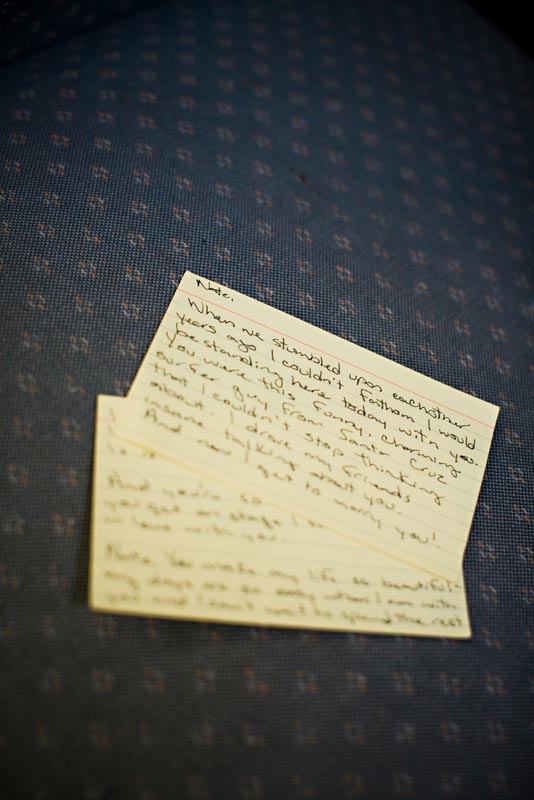 Nate,
When we stumbled upon eachother
years ago I couldn't fathom I would
be standing here today with you.
You were this funny, charming
surfer guy from Santa Cruz
that I couldn't stop thinking
about. I drove my friends
insane talking about you.
And now I get to marry you!
And you're so
you get on stage I
in love with you.
Nate, You make my life so beautiful-
my days are so easy when I am with
you and I can't wait to spend the rest